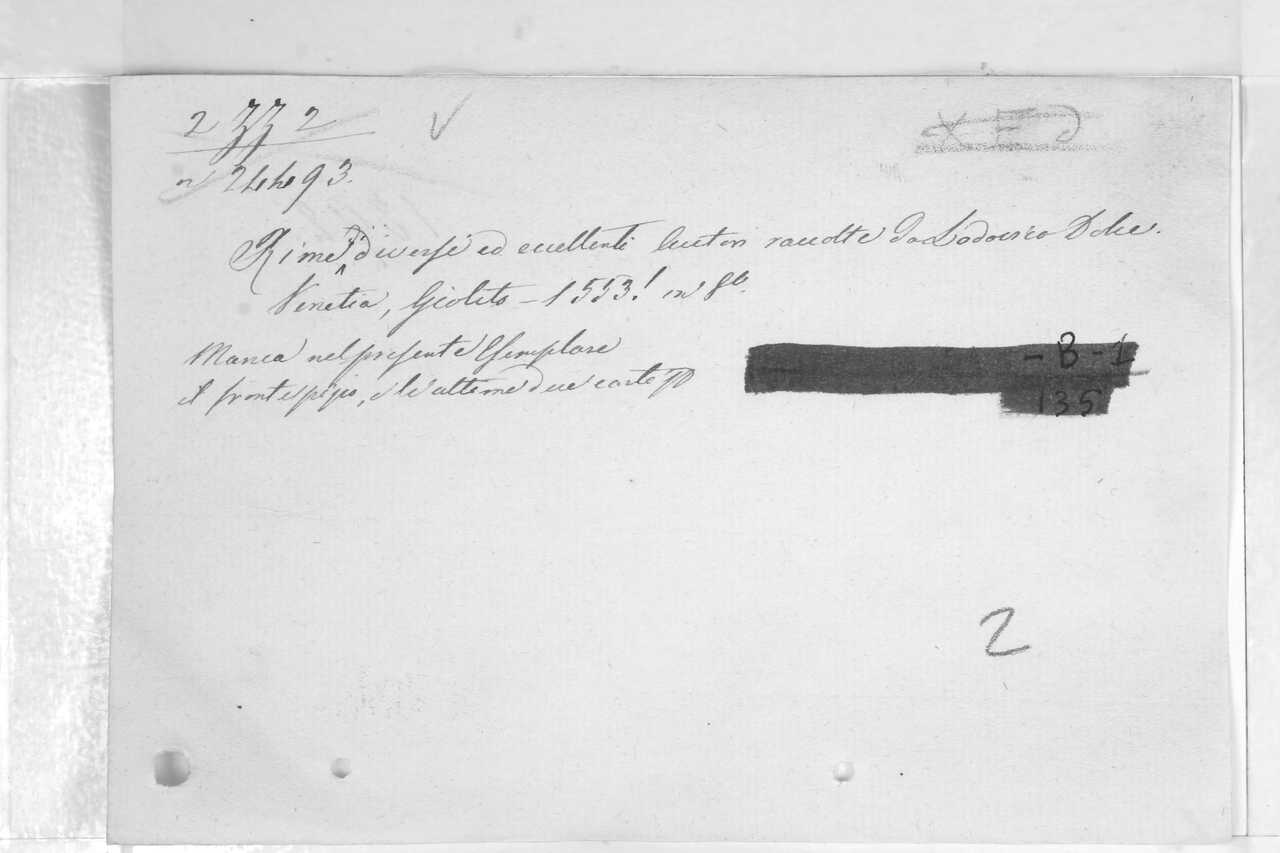 2 ZZ 2
n 24493.
Rime di diversi ed eccellenti Autori raccolte da Lodovico Dolce.
Venetia, Giolito - 1553! in 8º.
Manca nel presente Esemplare
il frontespizio, e le ultime due carte
- B - 1
135
2